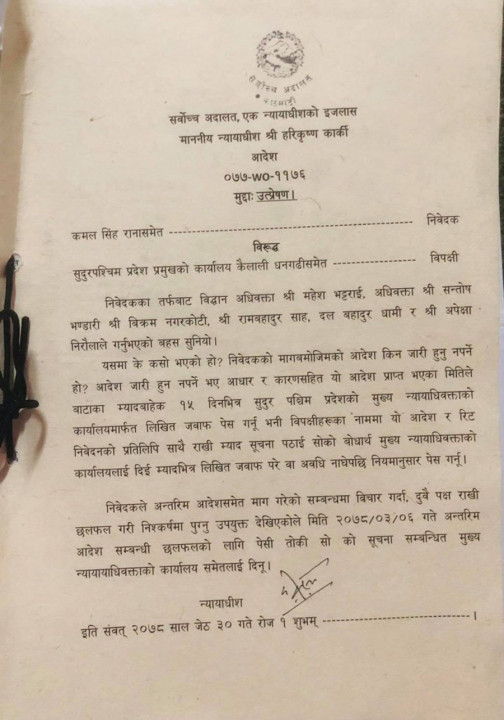 सर्वोच्च अदालत
काठमाडौं
सर्वोच्च अदालत, एक न्यायाधीशको इजलास
माननीय न्यायाधीश श्री हरिकृष्ण कार्की
आदेश
०७७-WO-११७६
मुद्दाः उत्प्रेषण।
कमल सिंह रानासमेत ------------------------------------------------ निवेदक
विरूद्ध
सुदुरपश्चिम प्रदेश प्रमुखको कार्यालय कैलाली धनगढीसमेत ----------------- विपक्षी
निवेदकका तर्फबाट विद्वान अधिवक्ता श्री महेश भट्टराई, अधिवक्ता श्री सन्तोष
भण्डारी श्री बिक्रम नगरकोटी, श्री रामबहादुर साह, दल बहादुर धामी र श्री अपेक्षा
निरौलाले गर्नुभएको बहस सुनियो।
यसमा के कसो भएको हो? निवेदकको मागबमोजिमको आदेश किन जारी हुनु नपर्ने
हो? आदेश जारी हुन नपर्ने भए आधार र कारणसहित यो आदेश प्राप्त भएका मितिले
बाटाका म्यादबाहेक १५ दिनभित्र सुदुर पश्चिम प्रदेशको मुख्य न्यायाधिवक्ताको
कार्यालयमार्फत लिखित जवाफ पेस गर्नू भनी विपक्षीहरूका नाममा यो आदेश र रिट
निवेदनको प्रतिलिपि साथै राखी म्याद सूचना पठाई सोको बोधार्थ मुख्य न्यायाधिवक्ताको
कार्यालयलाई दिई म्यादभित्र लिखित जवाफ परे बा अवधि नाघेपछि नियमानुसार पेस गर्नू।
निवेदकले अन्तरिम आदेशसमेत माग गरेको सम्बन्धमा बिचार गर्दा, दुवै पक्ष राखी
छलफल गरी निश्कर्षमा पुग्नु उपयुक्त देखिएकोले मिति २०७८/०३/०६ गते अन्तरिम
आदेश सम्बन्धी छलफलको लागि पेसी तोकी सो को सूचना सम्बन्धित मुख्य
न्यायायाधिवक्ताको कार्यालय समेतलाई दिनू।
न्यायाधीश
इति संवत् २०७८ साल जेठ ३० गते रोज १ शुभम् -------------------------------।